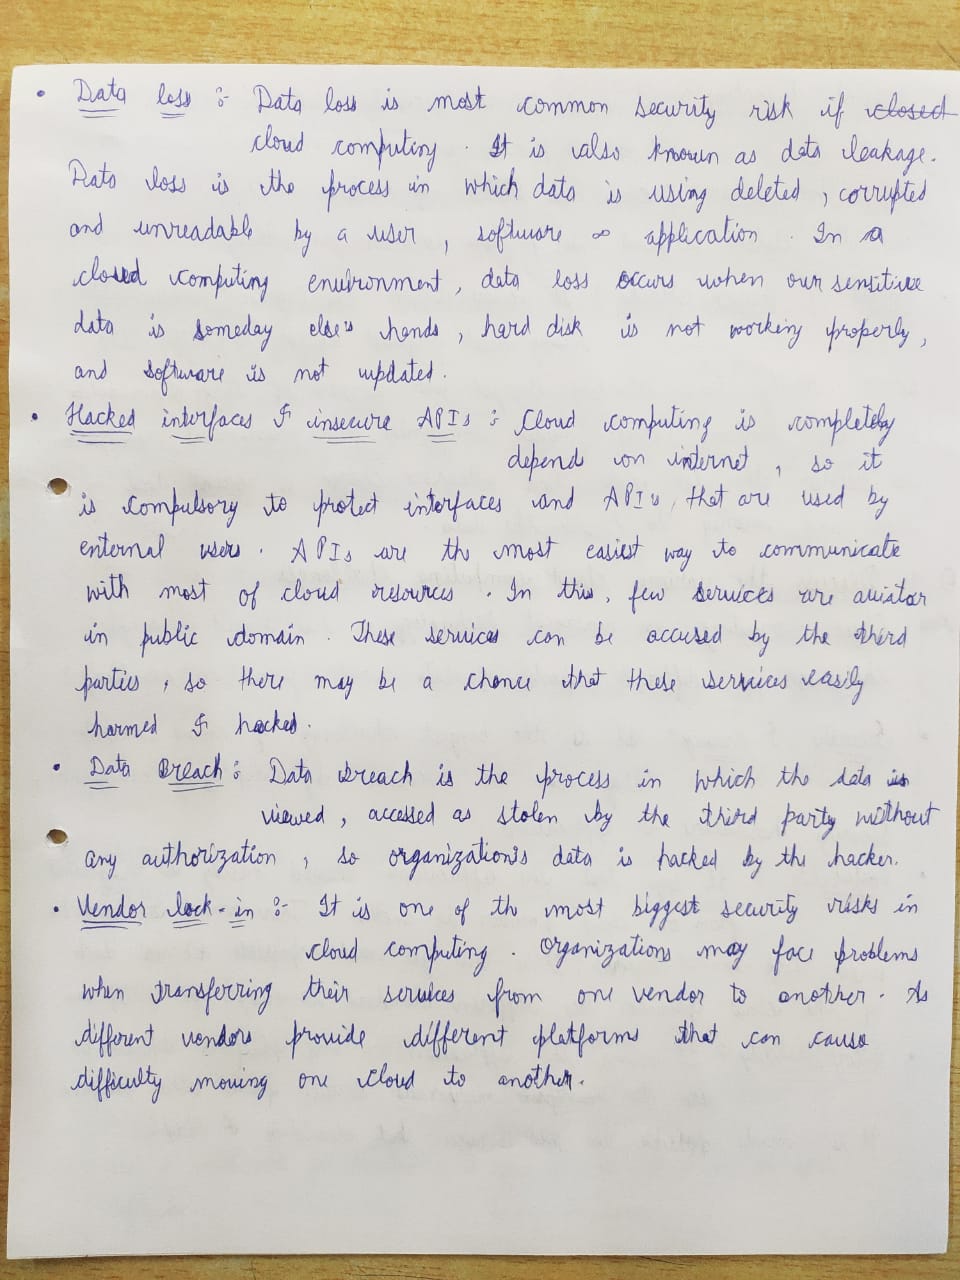 • Data loss :- Data loss is most common security risk if closed
cloud computing. It is also known as data leakage.
Data loss is the process in which data is using deleted, corrupted
and unreadable by a user, software or application. In a
closed computing environment, data loss occurs when our sensitive
data is someday else's hands, hard disk is not working properly,
and software is not updated.
• Hacked interfaces & insecure APIs : Cloud computing is completely
depend on internet, so it
is compulsory to protect interfaces and APIs, that are used by
enternal users. APIs are the most easiest way to communicate
with most of cloud resources. In this, few services are aviator
in public domain. These services can be accused by the third
parties, so there may be a chance that these services easily
harmed & hacked.
• Data Breach : Data breach is the process in which the data is
viewed, accessed as stolen by the third party without
any authorization, so organization's data is hacked by the hacker.
• Vendor lock-in :- It is one of th most biggest security risks in
cloud computing. Organizations may face problems
when transferring their services from one vendor to another. As
different vendors provide different platforms that can cause
difficulty moving one cloud to another.